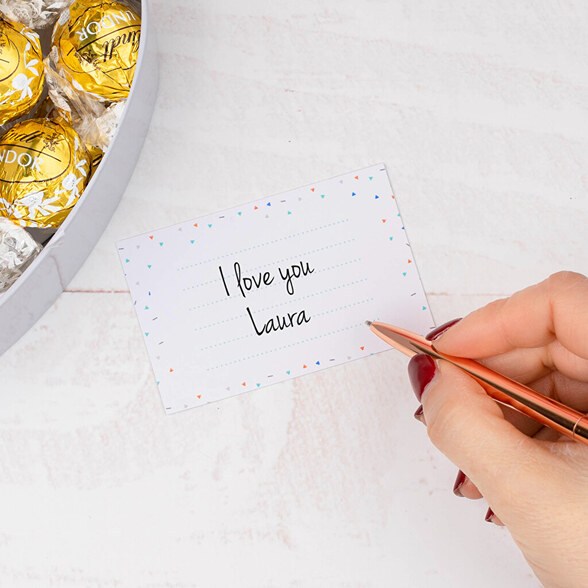 Lindt
LINDOR
Lindt
NDOR
I love you
Laura